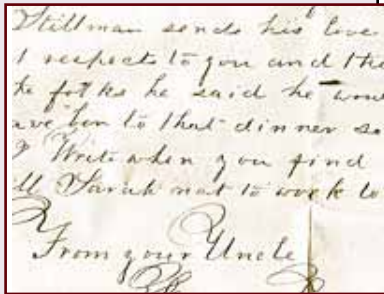 Stillman sends his love
respects to you and the
folks he said he wou
ave ben to that dinner so
Write when you find
Sarah not to work to
From your Uncle